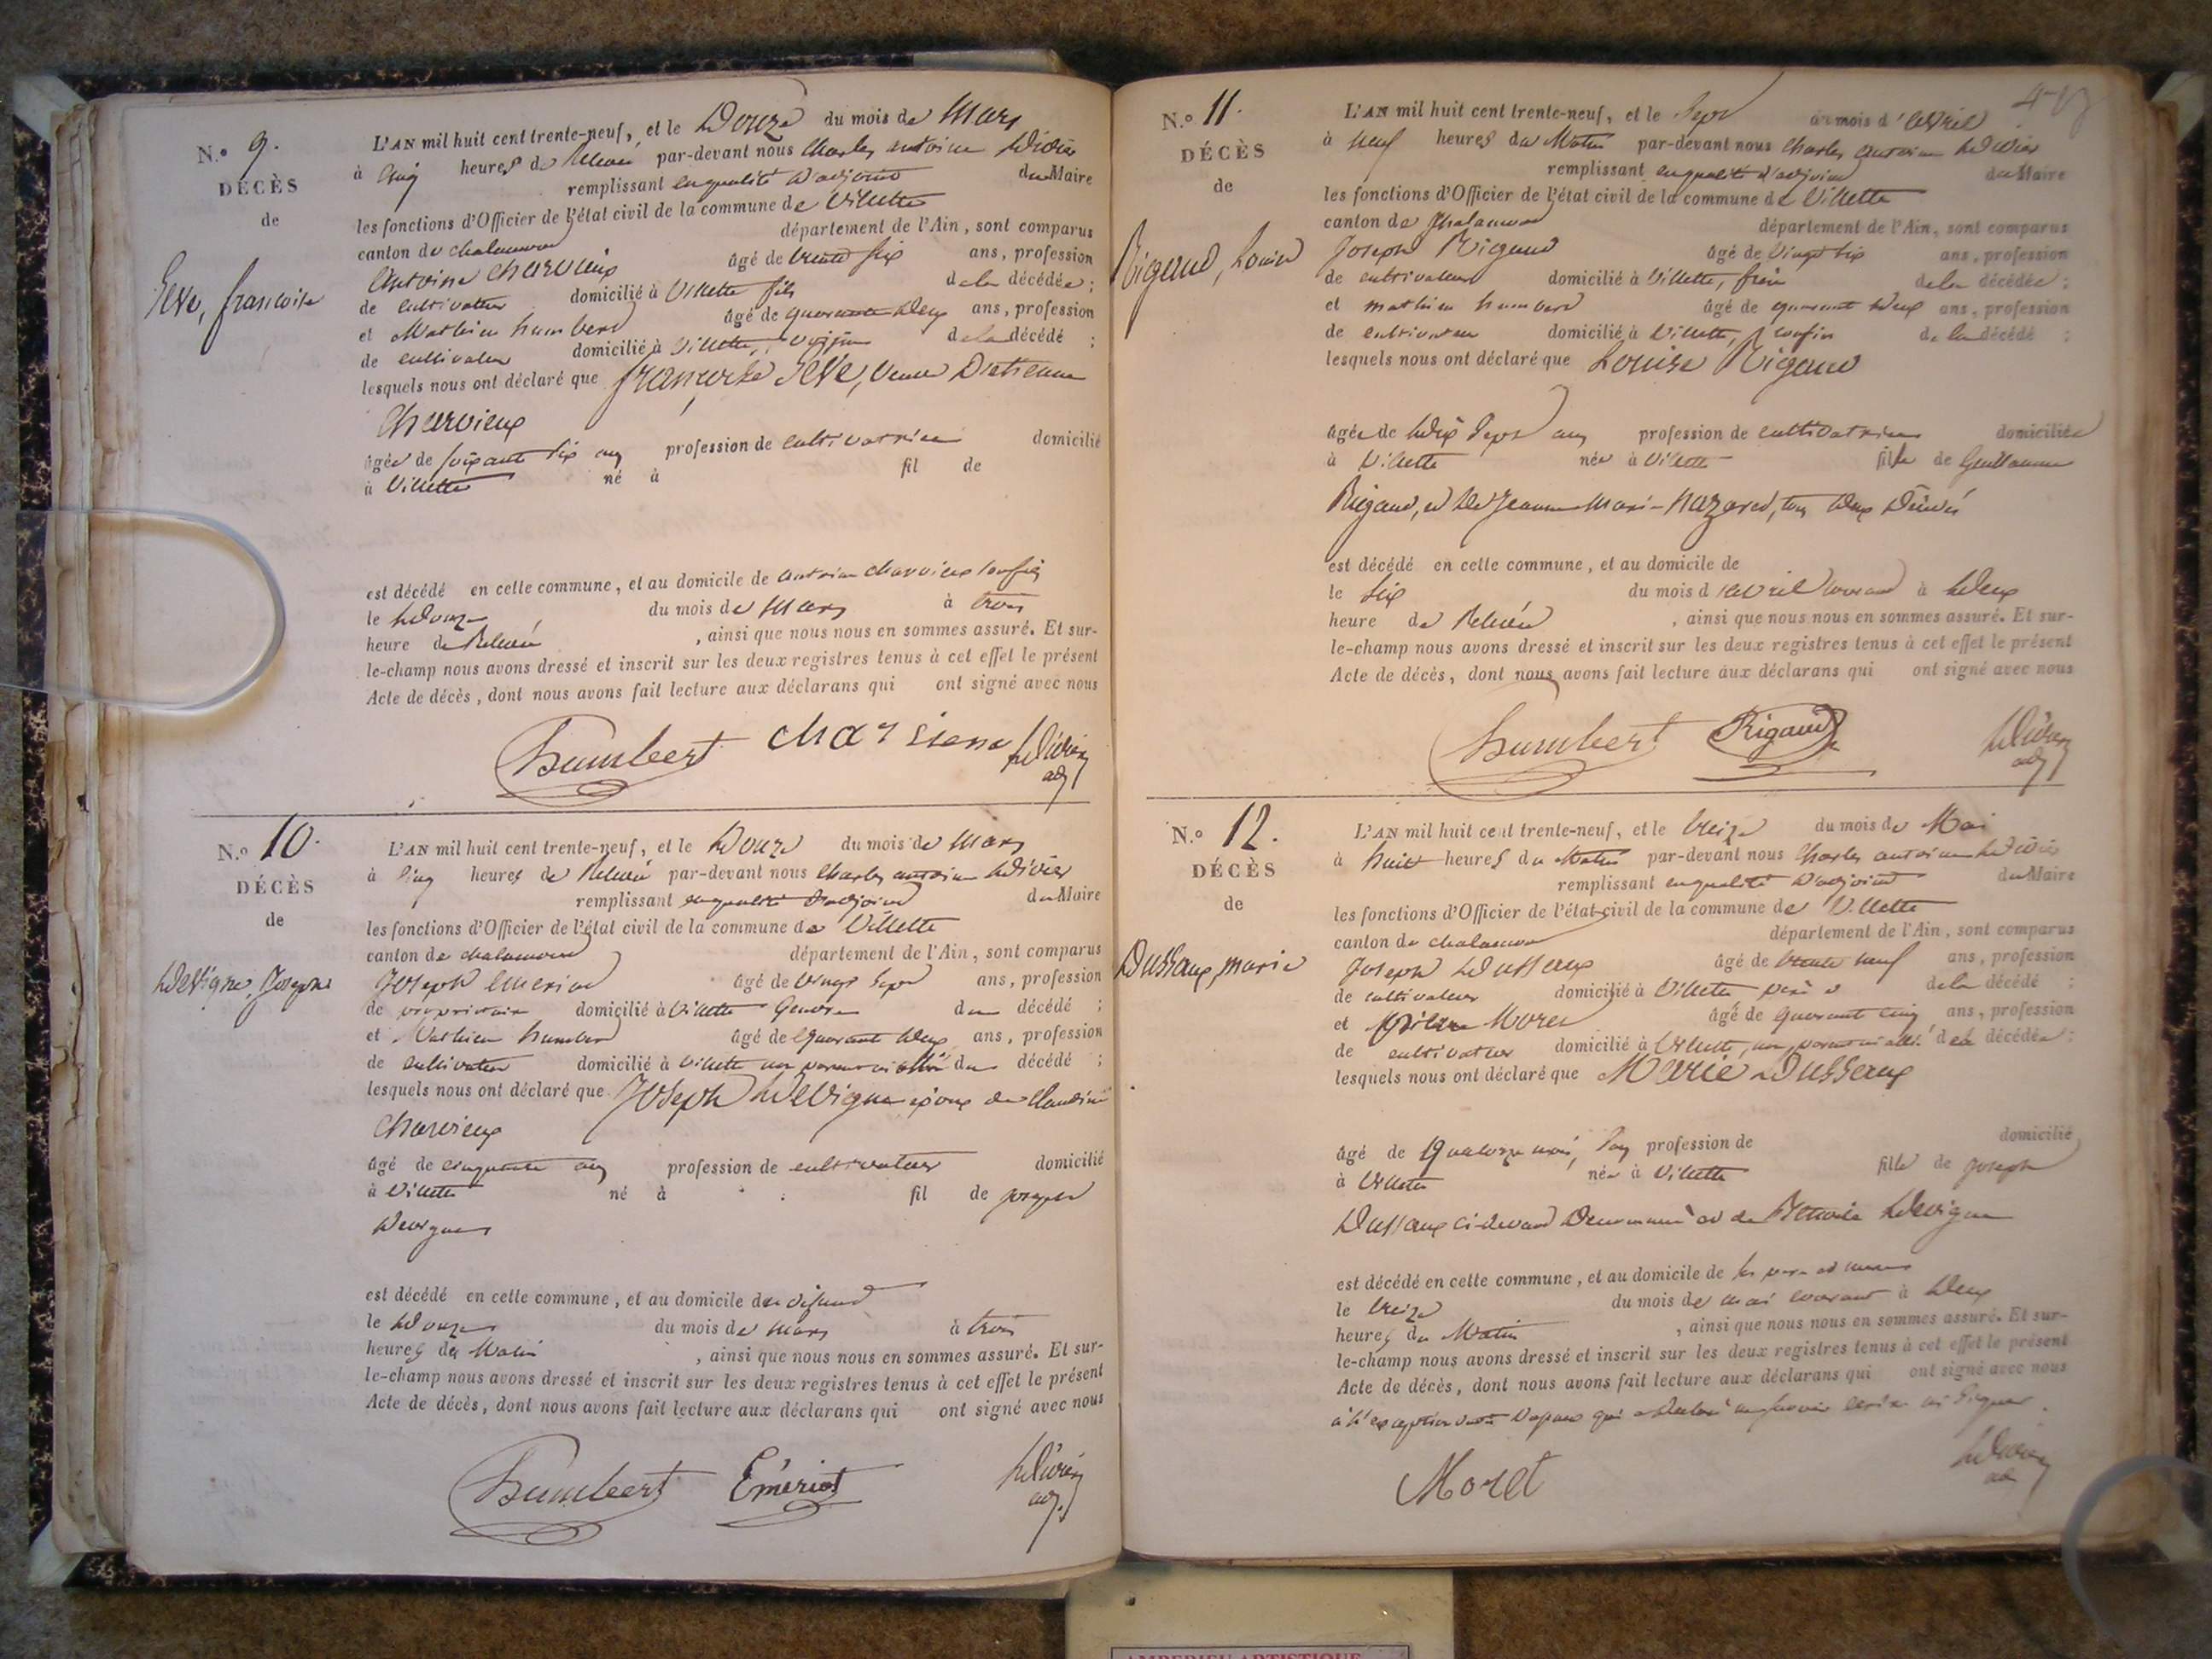 N.o 9.
DÉCÈS
de
Seve, francoise
L'AN mil huit cent trente-neuf, et le Douze du mois de Mars
à Cinq heures de Relevé par-devant nous Charles antoine Didier
remplissant en qualité d'adjoint du Maire
les fonctions d'Officier de l'état civil de la commune de Villette
canton de chalamont département de l'Ain, sont comparus
Antoine Charvieux âgé de trente six ans, profession
de cultivateur domicilié à Villette fils de la décédée ;
et Mathieu humbert âgé de quarante deux ans, profession
de cultivateur domicilié à Villette, voisin de la décédé ;
lesquels nous ont déclaré que francoise Seve, veuve D'etienne
Charvieux
âgée de soixante six ans profession de cultivatrice domicilié
à Villette né à fil de
est décédé en cette commune, et au domicile de antoine charvieux son fils
le Douze du mois de Mars à trois
heure de Relevé , ainsi que nous nous en sommes assuré. Et sur-
le-champ nous avons dressé et inscrit sur les deux registres tenus à cet effet le présent
Acte de décès, dont nous avons fait lecture aux déclarans qui ont signé avec nous
humbert Didier
adj
N.o 10.
DÉCÈS
de
Devigne, Joseph
L'AN mil huit cent trente-neuf, et le Douze du mois de Mars
à Cinq heures de Relevé par-devant nous Charles antoine Didier
remplissant en qualité d'adjoint du Maire
les fonctions d'Officier de l'état civil de la commune de Villette
canton de chalamont département de l'Ain, sont comparus
Joseph Emeriot âgé de vingt sept ans, profession
de propriétaire domicilié à Villette Gendre du décédé ;
et Mathieu humbert âgé de quarante deux ans, profession
de cultivateur domicilié à Villette non parent ni allié du décédé ;
lesquels nous ont déclaré que Joseph Devigne époux de Claudine
Charvieux
âgé de cinquante ans profession de cultivateur domicilié
à Villette né à fil de joseph
Devigne
est décédé en cette commune, et au domicile du défunt
le Douze du mois de Mars à trois
heures du Matin , ainsi que nous nous en sommes assuré. Et sur-
le-champ nous avons dressé et inscrit sur les deux registres tenus à cet effet le présent
Acte de décès, dont nous avons fait lecture aux déclarans qui ont signé avec nous
humbert Emériot Didier
adj.
N.o 11.
DÉCÈS
de
Rigaud, Louise
L'AN mil huit cent trente-neuf, et le Sept du mois d'avril
à neuf heures du Matin par-devant nous Charles antoine Didier
remplissant en qualité d'adjoint du Maire
les fonctions d'Officier de l'état civil de la commune de Villette
canton de Chalamont département de l'Ain, sont comparus
Joseph Rigaud âgé de vingt six ans, profession
de cultivateur domicilié à Villette, frère de la décédée ;
et mathieu humbert âgé de quarante deux ans, profession
de cultivateur domicilié à Villette, de la décédé ;
lesquels nous ont déclaré que Louise Rigaud
âgée de dix Sept ans profession de cultivatrice domiciliée
à Villette née à Villette fille de Guillaume
Rigaud, et de Jeanne Marie Nazaret, tous deux Décédés
est décédé en cette commune, et au domicile de
le Six du mois d'avril courant à deux
heure de Relevée , ainsi que nous nous en sommes assuré. Et sur-
le-champ nous avons dressé et inscrit sur les deux registres tenus à cet effet le présent
Acte de décès, dont nous avons fait lecture aux déclarans qui ont signé avec nous
humbert Rigaud Didier
adj
N.o 12.
DÉCÈS
de
Dussaux, marie
L'AN mil huit cent trente-neuf, et le treize du mois de Mai
à huit heures du Matin par-devant nous Charles antoine Didier
remplissant en qualité d'adjoint du Maire
les fonctions d'Officier de l'état civil de la commune de Villette
canton de chalamont département de l'Ain, sont comparus
Joseph Dussaux âgé de trente neuf ans, profession
de cultivateur domicilié à Villette père de la décédé ;
et Moret âgé de quarante cinq ans, profession
de cultivateur domicilié à Villette, non parent ni allié de la décédée ;
lesquels nous ont déclaré que Marie Dussaux
âgé de quatorze mois, sans profession de domicilié
à Villette née à Villette fille de joseph
Dussaux ci-devant Dénommé et de Devigne
est décédé en cette commune, et au domicile de ses père et mère
le treize du mois de mai courant à deux
heures du Matin , ainsi que nous nous en sommes assuré. Et sur-
le-champ nous avons dressé et inscrit sur les deux registres tenus à cet effet le présent
Acte de décès, dont nous avons fait lecture aux déclarans qui ont signé avec nous
à l'exception qui a déclaré ne savoir écrire ni signer.
Moret Didier
adj
AMBERIEU ARTISTIQUE